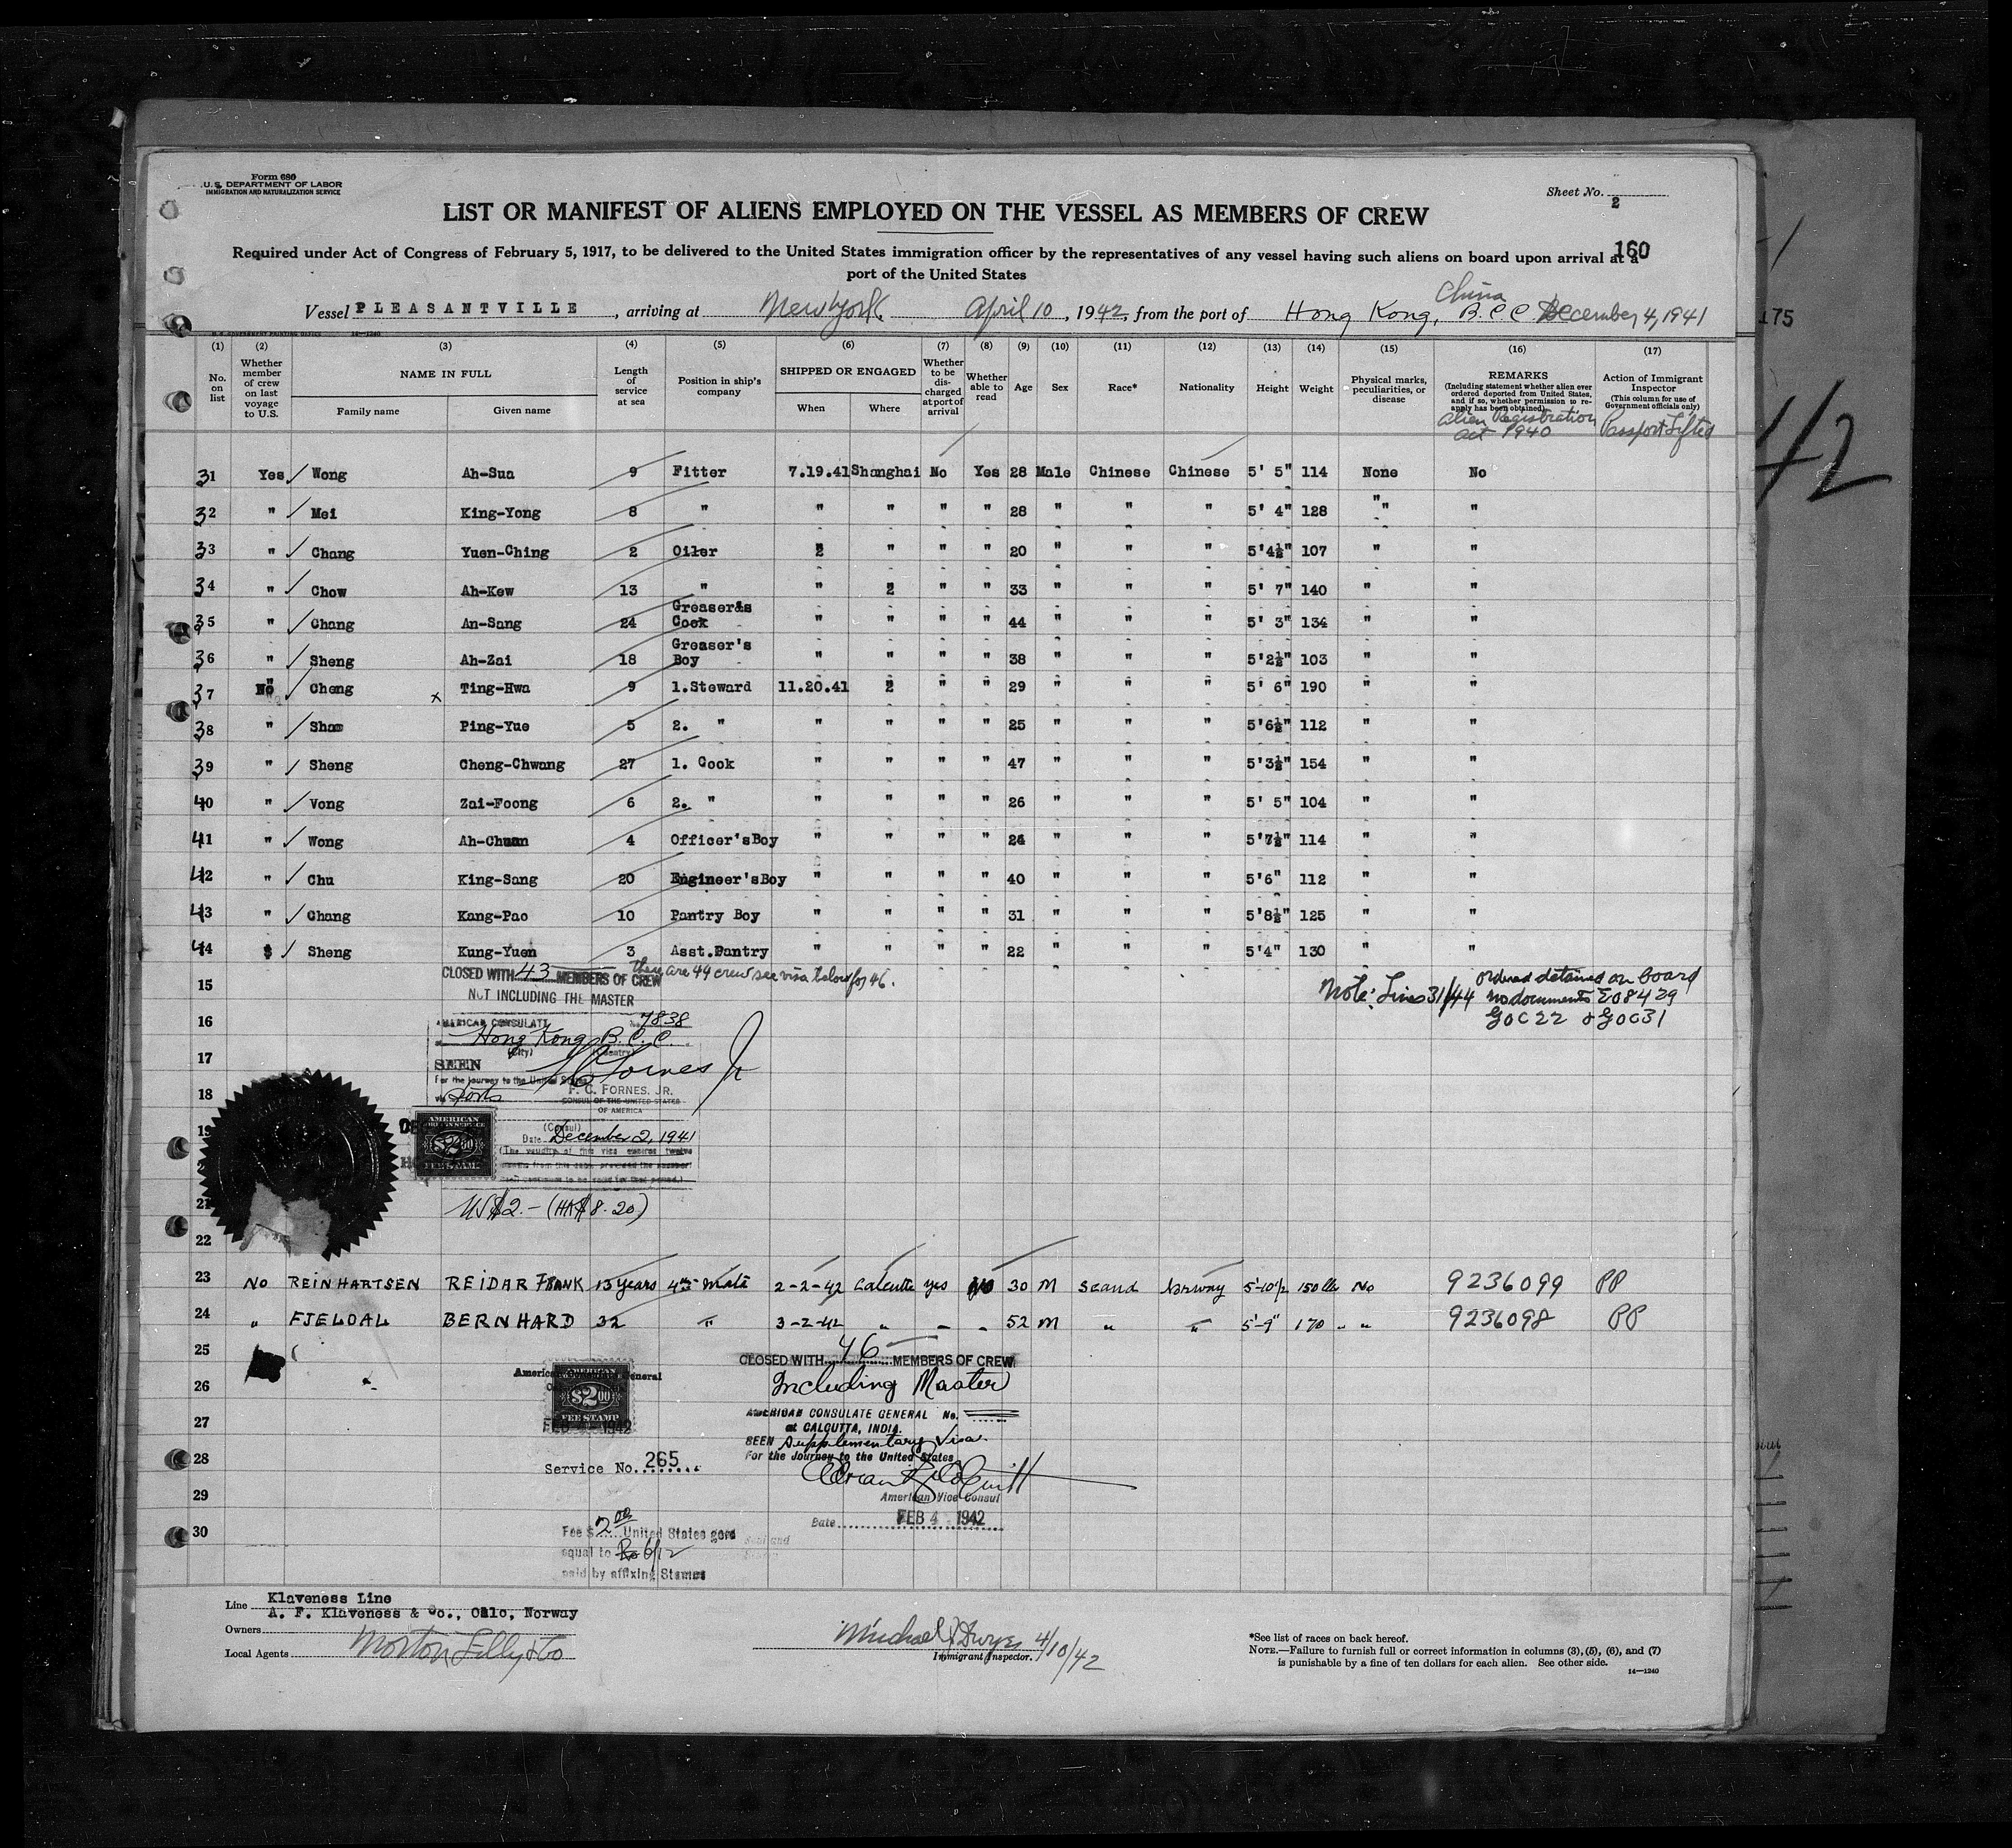 Form 680
U.S. DEPARTMENT OF LABOR
IMMIGRATION AND NATURALIZATION SERVICE
Sheet No. 2
LIST OR MANIFEST OF ALIENS EMPLOYED ON THE VESSEL AS MEMBERS OF CREW
160
Required under Act of Congress of February 5, 1917, to be delivered to the United States immigration officer by the representatives of any vessel having such aliens on board upon arrival at a
port of the United States
Vessel PLEASANTVILLE, arriving at New York, April 10, 1942, from the port of Hong Kong, B.C.C China December 4, 1941
175
42
(1) No. on list
(2) Whether member of crew on last voyage to U.S.
(3) NAME IN FULL Family name Given name
(4) Length of service at sea
(5) Position in ship's company
(6) SHIPPED OR ENGAGED When Where
(7) Whether to be discharged at port of arrival
(8) Whether able to read
(9) Age
(10) Sex
(11) Race*
(12) Nationality
(13) Height
(14) Weight
(15) Physical marks, peculiarities, or disease
(16) REMARKS (Including statement whether alien ever ordered deported from United States, and if so, whether permission to reapply has been obtained) Alien Registration Act 1940
(17) Action of Immigrant Inspector (This column for use of Government officials only) Passport Lifted
31 Yes Wong Ah-Sua 9 Fitter 7.19.41 Shanghai No Yes 28 Male Chinese Chinese 5' 5" 114 None No
32 " Mei King-Yong 8 " " " " " 28 " " " 5' 4" 128 " "
33 " Chang Yuen-Ching 2 Oiler " " " " 20 " " " 5'4½" 107 " "
34 " Chow Ah-Kew 13 " " " " " 33 " " " 5' 7" 140 " "
35 " Chang An-Sang 24 Greaser's Cook " " " " 44 " " " 5' 3" 134 " "
36 " Sheng Ah-Zai 18 Greaser's Boy " " " " 38 " " " 5'2½" 103 " "
37 No Cheng x Ting-Hwa 9 1.Steward 11.20.41 " " " 29 " " " 5' 6" 190 " "
38 " Sham Ping-Yue 5 2. " " " " " 25 " " " 5'6½" 112 " "
39 " Sheng Cheng-Chwang 27 1. Cook " " " " 47 " " " 5'3½" 154 " "
40 " Vong Zai-Foong 6 2. " " " " " 26 " " " 5' 5" 104 " "
41 " Wong Ah-Chuan 4 Officer'sBoy " " " " 24 " " " 5'7½" 114 " "
42 " Chu King-Sang 20 Engineer'sBoy " " " " 40 " " " 5'6" 112 " "
43 " Chang Kang-Pao 10 Pantry Boy " " " " 31 " " " 5'8½" 125 " "
44 " Sheng Kung-Yuen 3 Asst.Pantry " " " " 22 " " " 5'4" 130 " "
CLOSED WITH 43 MEMBERS OF CREW there are 44 crew see visa below for 46.
NOT INCLUDING THE MASTER
Note: Lines 31/44 ordered detained on board
no documents E08429
GOC22 & GOC31
15
16
AMERICAN CONSULATE No. 7838
Hong Kong B.C.C.
(City) (Country)
17
SEEN
For the journey to the United States
18
via Ports
F. C. FORNES, JR.
CONSUL OF THE UNITED STATES
OF AMERICA
19
AMERICAN
FOREIGN SERVICE
$2.00
FEE STAMP
(Consul)
Date December 2, 1941
(The validity of this visa expires twelve
months from this date, provided the passport
21
US$2.- (HK$8.20)
22
23 No REINHARTSEN REIDAR FRANK 13 years 4th Mate 2-2-42 Calcutta yes 30 M Scand Norway 5'-10½ 150 lbs No 9236099 PP
24 " FJELDAL BERNHARD 32 " 3-2-42 " " " 52 M " " 5'-9" 170 " " 9236098 PP
25
CLOSED WITH 46 MEMBERS OF CREW
26
Including Master
American Consulate General
$2.00
FEE STAMP
FEB 4 1942
27
AMERICAN CONSULATE GENERAL No.
at CALCUTTA, INDIA.
SEEN Supplementary Visa
28
For the Journey to the United States
Service No. 265
29
American Vice Consul
Date FEB 4 1942
30
Fee $ 2.00 United States gold
equal to Rs 6/12
paid by affixing Stamps
Line Klaveness Line
Owners A. F. Klaveness & Co., Oslo, Norway
Local Agents Morton Lilly & Co
Michael J Dwyer 4/10/42
Immigrant Inspector.
*See list of races on back hereof.
NOTE.—Failure to furnish full or correct information in columns (3), (5), (6), and (7)
is punishable by a fine of ten dollars for each alien. See other side.
14—1240